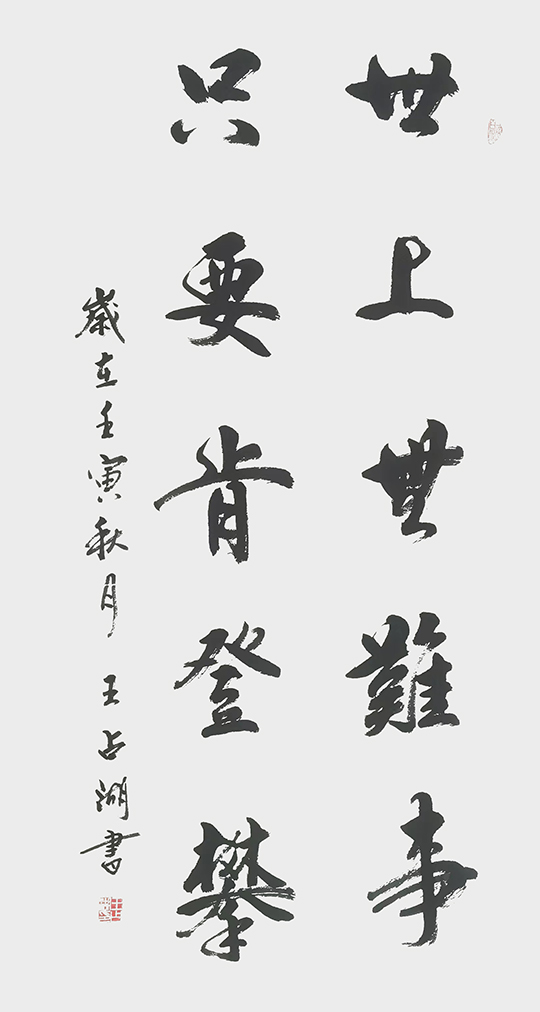 世上無難事
只要肯登攀
歲在壬寅秋月 王占湖書